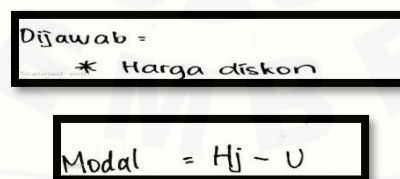 Dijawab =
* Harga diskon
Modal = Hj - U